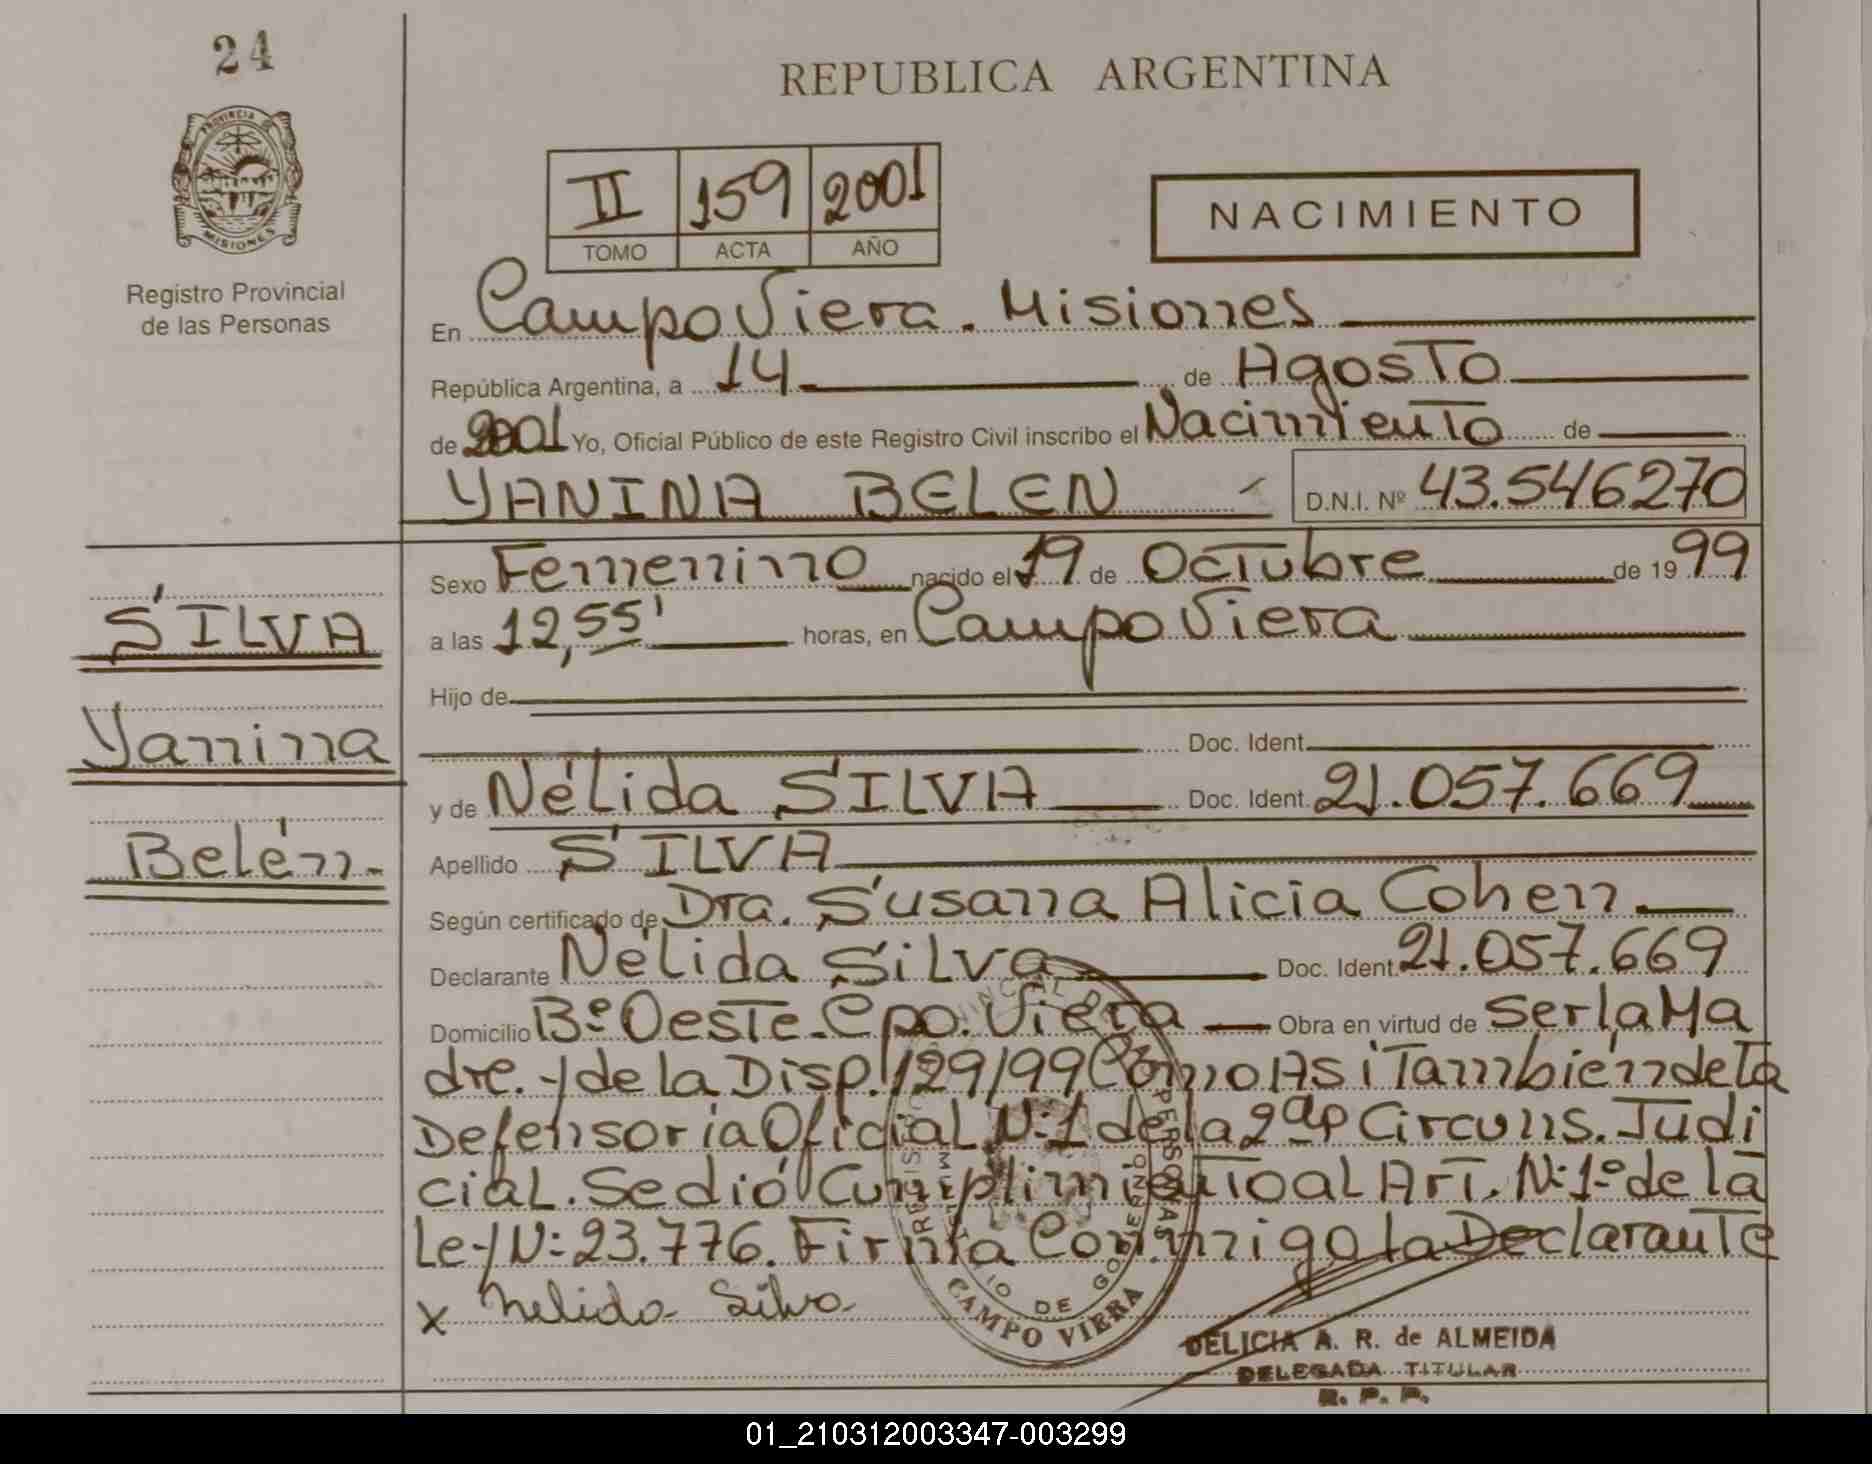 24
REPUBLICA ARGENTINA
PROVINCIA DE
MISIONES
Registro Provincial
de las Personas
II 159 2001
TOMO ACTA AÑO
NACIMIENTO
En Campo Viera. Misiones
República Argentina, a 14 de Agosto
de 2001 Yo, Oficial Público de este Registro Civil inscribo el Nacimiento de
YANINA BELEN D.N.I. Nº 43.546270
Sexo Femenino nacido el 19 de Octubre de 1999
a las 12,55' horas, en Campo Viera
Hijo de
Doc. Ident.
y de Nélida SILVA Doc. Ident. 21.057.669
Apellido SILVA
Según certificado de Dra. Susana Alicia Cohen
Declarante Nélida Silva Doc. Ident. 21.057.669
Domicilio Bº Oeste-Cpo. Viera Obra en virtud de Ser la Ma
dre. y de la Disp. 129/99 Como Asi También de la
Defensoría Oficial N:1 de la 2da Circuns. Judi
cial. Se dió Cumplimiento al Art. N:1º de la
Ley N: 23.776. Firma Conmigo la Declarante
x Nelida Silva
SILVA
Yanina
Belén.
CAMPO VIERA
MINISTERIO DE GOBIERNO
DELICIA A. R. de ALMEIDA
DELEGADA TITULAR
R. P. P.
01_210312003347-003299